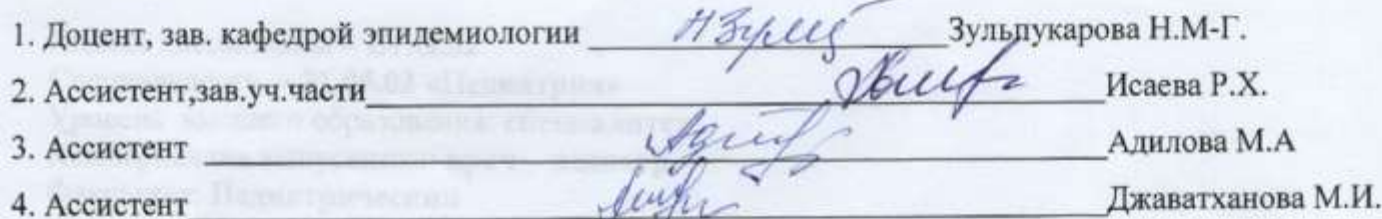 1. Доцент, зав. кафедрой эпидемиологии Зульпукарова Н.М-Г.
2. Ассистент,зав.уч.части Исаева Р.Х.
3. Ассистент Адилова М.А
4. Ассистент Джаватханова М.И.